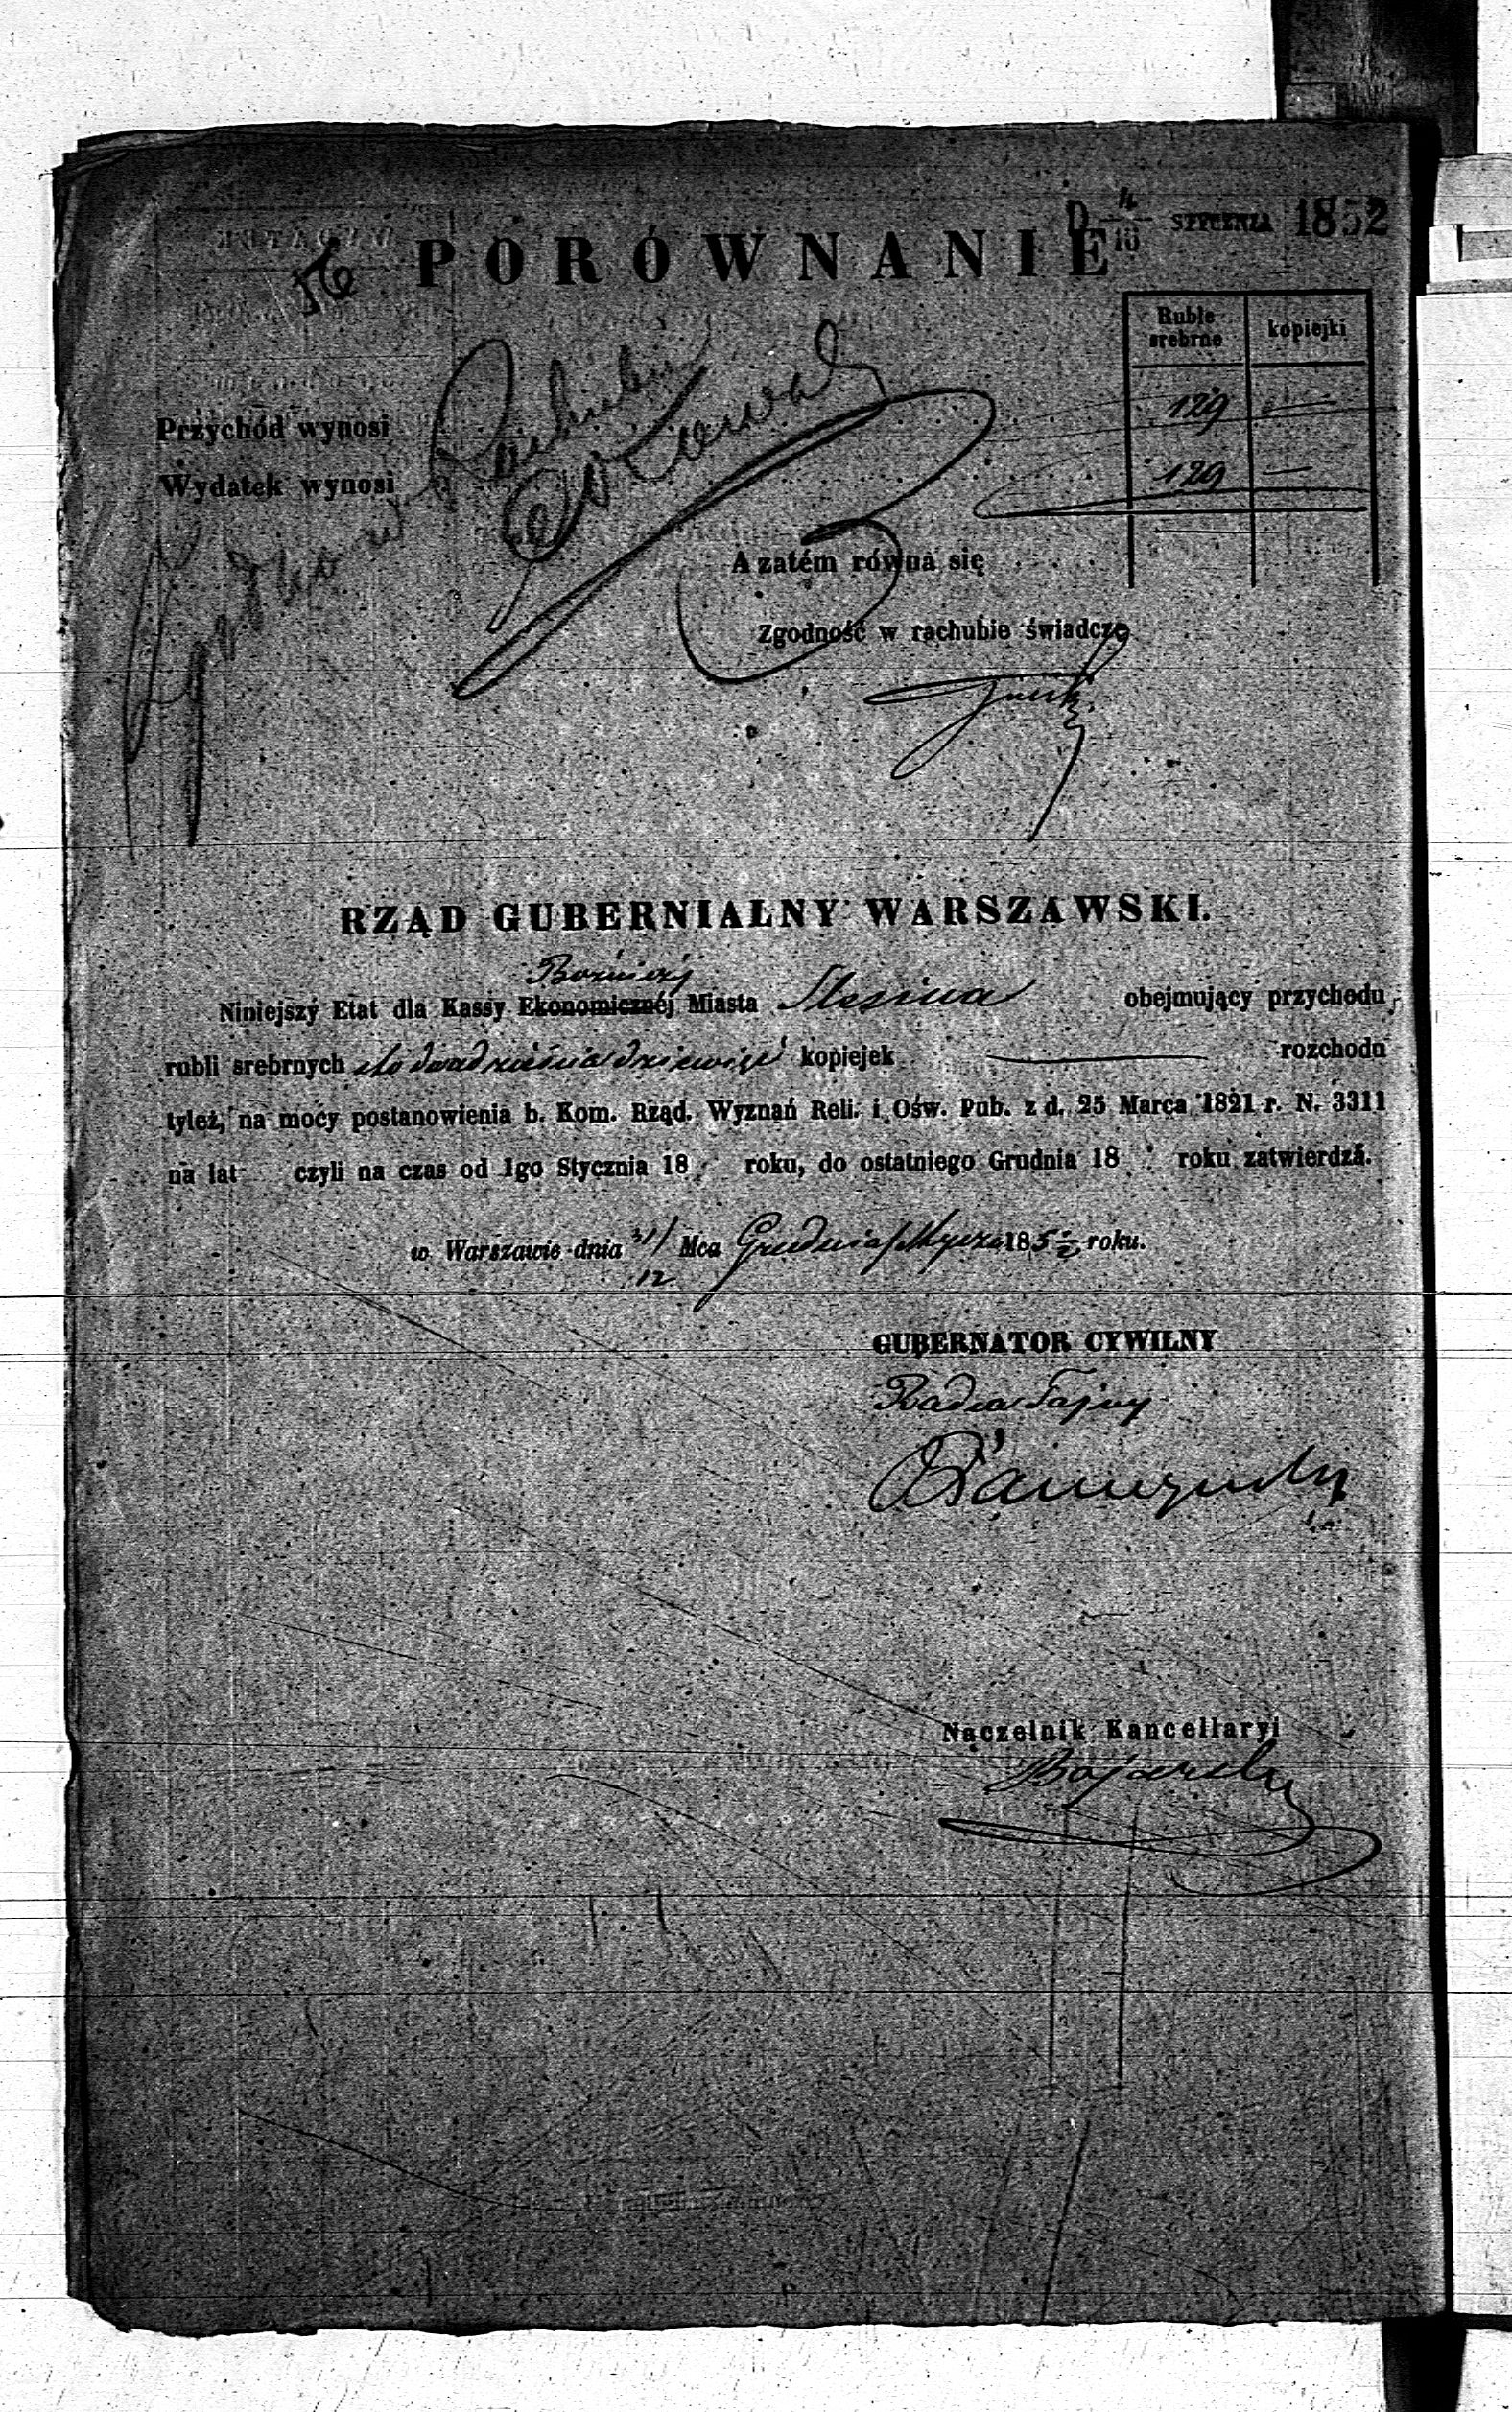 D 4/16 STYCZNIA 1852
PORÓWNANIE
56
Ruble srebrne
kopiejki
Przychód wynosi 129 —
Wydatek wynosi 129 —
A zatém równa się
Zgodność w rachubie świadczę
RZĄD GUBERNIALNY WARSZAWSKI.
Bożniczéj
Niniejszy Etat dla Kassy Ekonomicznéj Miasta Slesina obejmujący przychodu
rubli srebrnych sto dwadzieścia dziewięć kopiejek — rozchodu
tyleż, na mocy postanowienia b. Kom. Rząd. Wyznań Reli. i Ośw. Pub. z d. 25 Marca 1821 r. N. 3311
na lat czyli na czas od 1go Stycznia 18 roku, do ostatniego Grudnia 18 roku zatwierdzá.
w Warszawie dnia 31/12 Mca Grudnia/Stycz. 185 1/2 roku.
GUBERNATOR CYWILNY
Radca Tajny
Naczelnik Kancellaryi
Bojarski